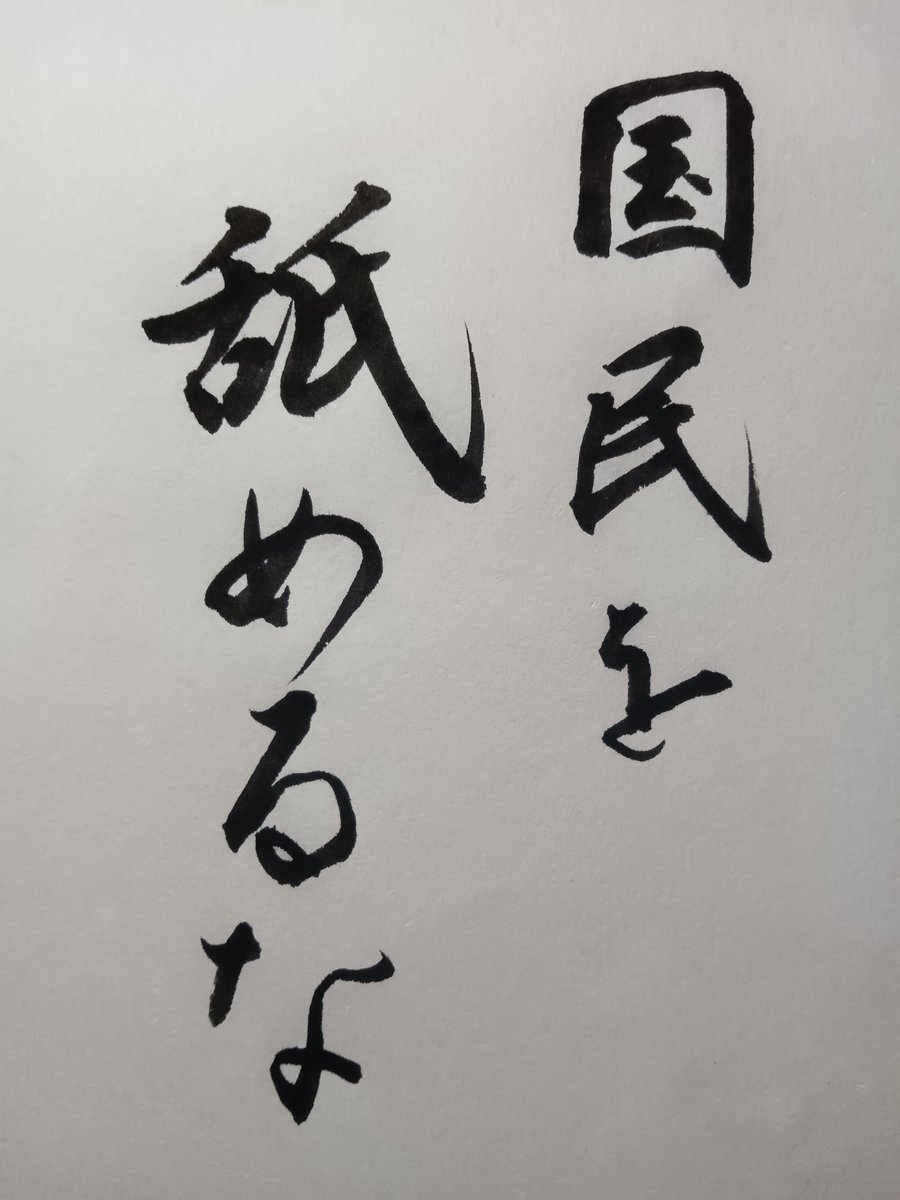 国民を
舐めるな